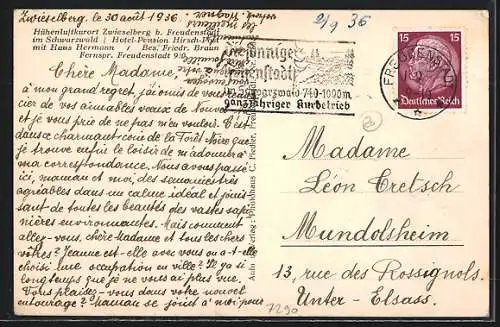 Zwieselberg, le 30 août 1936.
Höhenluftkurort Zwieselberg b. Freudenstadt
im Schwarzwald / Hotel-Pension Hirsch-Post
mit Haus Hermann / Bes. Friedr. Braun
Fernspr. Freudenstadt 975
Chère Madame,
à mon grand regret, j'ai omis de vous
cier de vos aimables vœux de Nouvel
et je vous prie de ne pas m'en vouloir. C'est
dans ce charmant coin de la Forêt Noire que
je trouve enfin le loisir de m'adonner à
ma correspondance. Nous avons passé
ici, maman et moi, des semaines très
agréables dans un calme idéal et jouis-
sant de toutes les beautés des vastes sapi-
nières environnantes. Mais comment
allez-vous, chère Madame et tous les chers
vôtres? Jeanne est-elle avec vous ou a-t-elle
choisi une occupation en ville? Il y a si
longtemps que je ne vous ai plus vue.
Vous plaisez-vous dans votre nouvel
entourage? Maman se joint à moi pour
2/9 36
sonnige
Freudenstadt
im Schwarzwald 740-1000m
ganzjähriger Kurbetrieb
FREUDENSTADT
15 15
Deutsches Reich
Madame
Léon Cretsch
Mundolsheim
13, rue des Rossignols.
Unter-Elsass.
7290